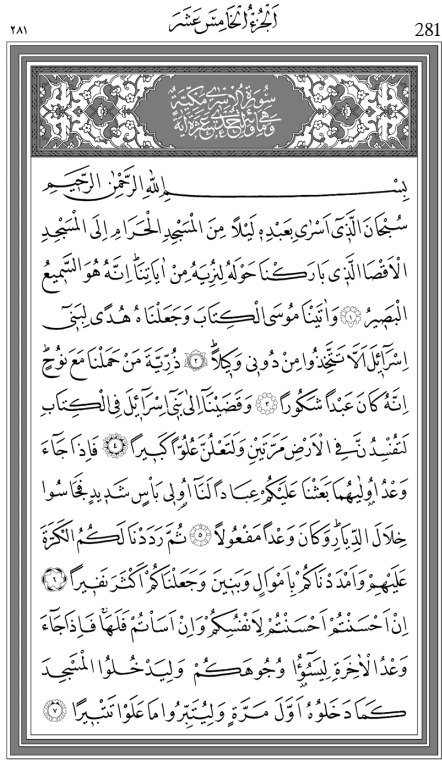 ٢٨١ اَلْجُزْءُ الْخَامِسَ عَشَرَ 281
سُورَةُ الْاِسْرٰى مَكِّيَّةٌ
وَهِيَ مِائَةٌ وَاِحْدٰى عَشْرَةَ اٰيَةً
بِسْمِ اللهِ الرَّحْمٰنِ الرَّحِيمِ
سُبْحَانَ الَّذٖٓي اَسْرٰى بِعَبْدِهٖ لَيْلاً مِنَ الْمَسْجِدِ الْحَرَامِ اِلَى الْمَسْجِدِ
الْاَقْصَا الَّذٖي بَارَكْنَا حَوْلَهُ لِنُرِيَهُ مِنْ اٰيَاتِنَاۜ اِنَّهُ هُوَ السَّمٖيعُ
الْبَصٖيرُ ﴿١﴾ وَاٰتَيْنَا مُوسَى الْكِتَابَ وَجَعَلْنَاهُ هُدًى لِبَنٖٓي
اِسْرَٓائٖلَ اَلَّا تَتَّخِذُوا مِنْ دُونٖي وَكٖيلاًۜ ﴿٢﴾ ذُرِّيَّةَ مَنْ حَمَلْنَا مَعَ نُوحٍۜ
اِنَّهُ كَانَ عَبْداً شَكُوراً ﴿٣﴾ وَقَضَيْنَٓا اِلٰى بَنٖٓي اِسْرَٓائٖلَ فِي الْكِتَابِ
لَتُفْسِدُنَّ فِي الْاَرْضِ مَرَّتَيْنِ وَلَتَعْلُنَّ عُلُوًّا كَبٖيراً ﴿٤﴾ فَاِذَا جَٓاءَ
وَعْدُ اُو۫لٰيهُمَا بَعَثْنَا عَلَيْكُمْ عِبَاداً لَنَٓا اُو۬لٖي بَأْسٍ شَدٖيدٍ فَجَاسُوا
خِلَالَ الدِّيَارِۜ وَكَانَ وَعْداً مَفْعُولاً ﴿٥﴾ ثُمَّ رَدَدْنَا لَكُمُ الْكَرَّةَ
عَلَيْهِمْ وَاَمْدَدْنَاكُمْ بِاَمْوَالٍ وَبَنٖينَ وَجَعَلْنَاكُمْ اَكْثَرَ نَفٖيراً ﴿٦﴾
اِنْ اَحْسَنْتُمْ اَحْسَنْتُمْ لِاَنْفُسِكُمْ وَاِنْ اَسَأْتُمْ فَلَهَاۜ فَاِذَا جَٓاءَ
وَعْدُ الْاٰخِرَةِ لِيَسُٓؤُ۫ا وُجُوهَكُمْ وَلِيَدْخُلُوا الْمَسْجِدَ
كَمَا دَخَلُوهُ اَوَّلَ مَرَّةٍ وَلِيُتَبِّرُوا مَا عَلَوْا تَتْبٖيراً ﴿٧﴾